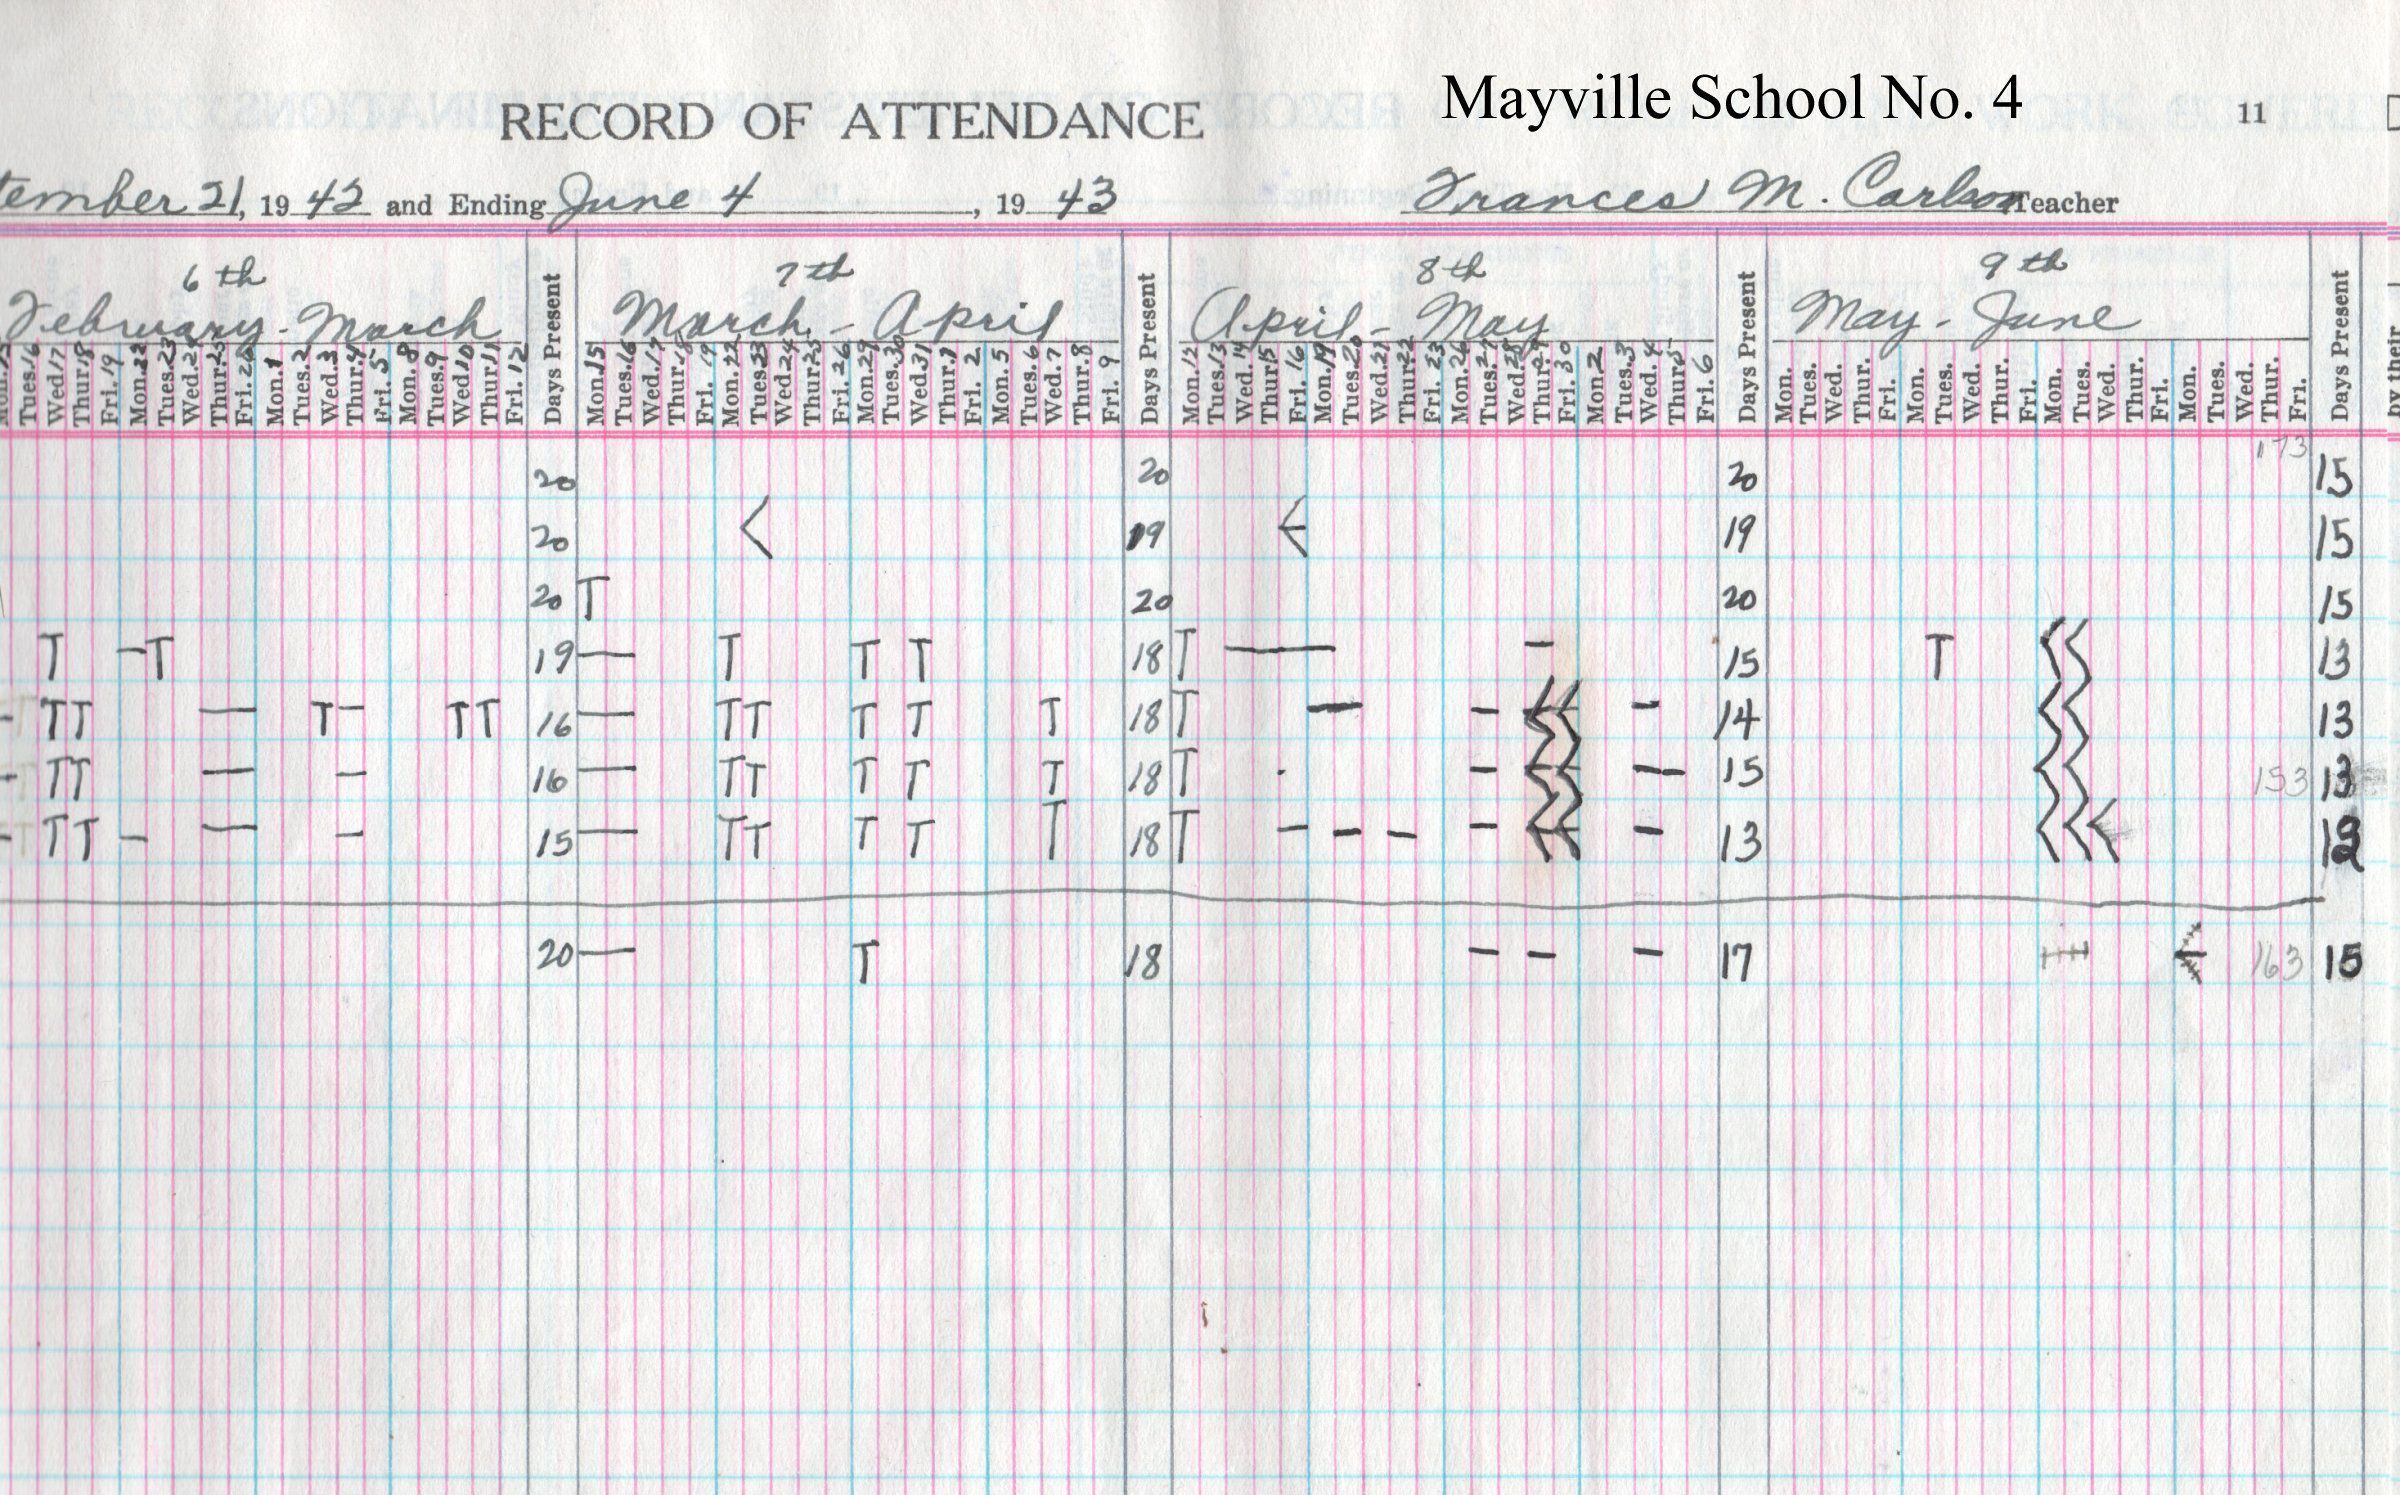 RECORD OF ATTENDANCE Mayville School No. 4 11
tember 21, 19 42 and Ending June 4, 19 43 Frances M. Carlson Teacher
6th 7th 8th 9th
February - March Days Present March - April Days Present April - May Days Present May - June Days Present by their
Mon. 15 Tues. 16 Wed. 17 Thur. 18 Fri. 19 Mon. 22 Tues. 23 Wed. 24 Thur. 25 Fri. 26 Mon. 1 Tues. 2 Wed. 3 Thur. 4 Fri. 5 Mon. 8 Tues. 9 Wed. 10 Thur. 11 Fri. 12 Mon. 15 Tues. 16 Wed. 17 Thur. 18 Fri. 19 Mon. 22 Tues. 23 Wed. 24 Thur. 25 Fri. 26 Mon. 29 Tues. 30 Wed. 31 Thur. 1 Fri. 2 Mon. 5 Tues. 6 Wed. 7 Thur. 8 Fri. 9 Mon. 12 Tues. 13 Wed. 14 Thur. 15 Fri. 16 Mon. 19 Tues. 20 Wed. 21 Thur. 22 Fri. 23 Mon. 26 Tues. 27 Wed. 28 Thur. 29 Fri. 30 Mon. 2 Tues. 3 Wed. 4 Thur. 5 Fri. 6 Mon. Tues. Wed. Thur. Fri. Mon. Tues. Wed. Thur. Fri. Mon. Tues. Wed. Thur. Fri. Mon. Tues. Wed. Thur. Fri.
173
20 20 20 15
20 19 19 15
20 T 20 20 15
T T 19 T T T 18 T 15 T 13
T T T T T 16 T T T T T 18 T 14 13
T T 16 T T T T T 18 T 15 153 13
T T 15 T T T T T 18 T 13
20 T 18 17 163 15